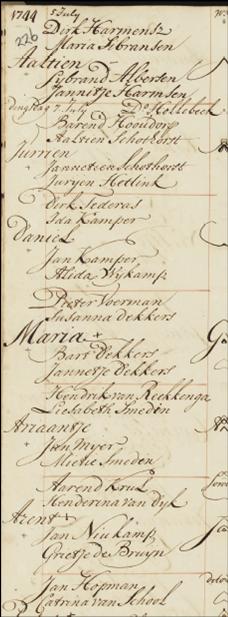 1744 5 July
226
Dirk Harmensz
Maria Sibransen
Aaltien
Sybrand Alberten
Jannitje Harmsen
dingstag 7 July Do Hollebeek
Barend Nooudorp
Aaltien Schothorst
Jurrien
Janneteen Schothorst
Juryen Hellink
Dirk Federas
Ida Kamper
Daniel
Jan Kamper
Alida Wykamp
Pieter Voerman
Susanna dekkers
Maria +
Bart Dekkers
Jannetje Dekkers
Hendrik van Reekkenga
Liesabeth Smeden
Ariaantje
Jan Myer
Mietie Smeden
Aarend Kruk
Henderina van Dyk
Arent +
Jan Niukamp
Grietje de Bruyn
Jan Hopman
Catrina van School